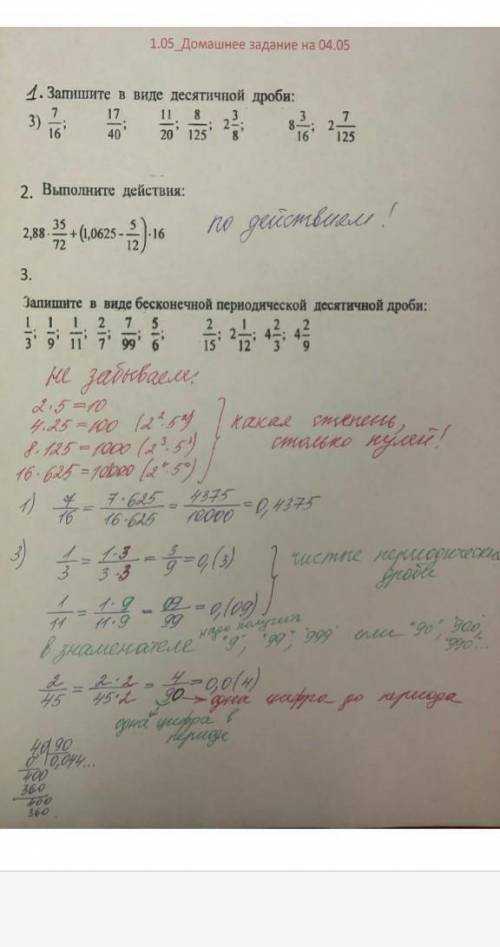 1.05_Домашнее задание на 04.05
1. Запишите в виде десятичной дроби:
3) 7/16; 17/40; 11/20; 8/125; 2 3/8; 8 3/16; 2 7/125
2. Выполните действия:
2,88·35/72+(1,0625-5/12)·16 по действиям!
3.
Запишите в виде бесконечной периодической десятичной дроби:
1/3; 1/9; 1/11; 2/7; 7/99; 5/6; 2/15; 2 1/12; 4 2/3; 4 2/9
Не забываем:
2·5=10
4·25=100 (2²·5²)
8·125=1000 (2³·5³)
16·625=10000 (2⁴·5⁴)
какая степень,
столько нулей!
1) 7/16 = 7·625/16·625 = 4375/10000 = 0,4375
3) 1/3 = 1·3/3·3 = 3/9 = 0,(3)
1/11 = 1·9/11·9 = 09/99 = 0,(09)
чистые периодические
дроби
в знаменателе надо получить "9", "99", "999" или "90", "900", "990"...
2/45 = 2·2/45·2 = 4/90 = 0,0(4)
одна цифра до периода
одна цифра в
периоде
40 90
0 0,044...
400
360
400
360